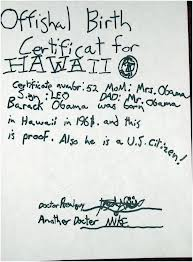 Offishal Birth
Certificat for
HAWAII
Certificate number: 52 MOM: Mrs. Obama
Sign: LEO DAD: Mr. Obama
Barack Obama was born
in Hawaii in 1961. and this
is proof. Also he is a U.S. citizen!
Another Docter MIKE